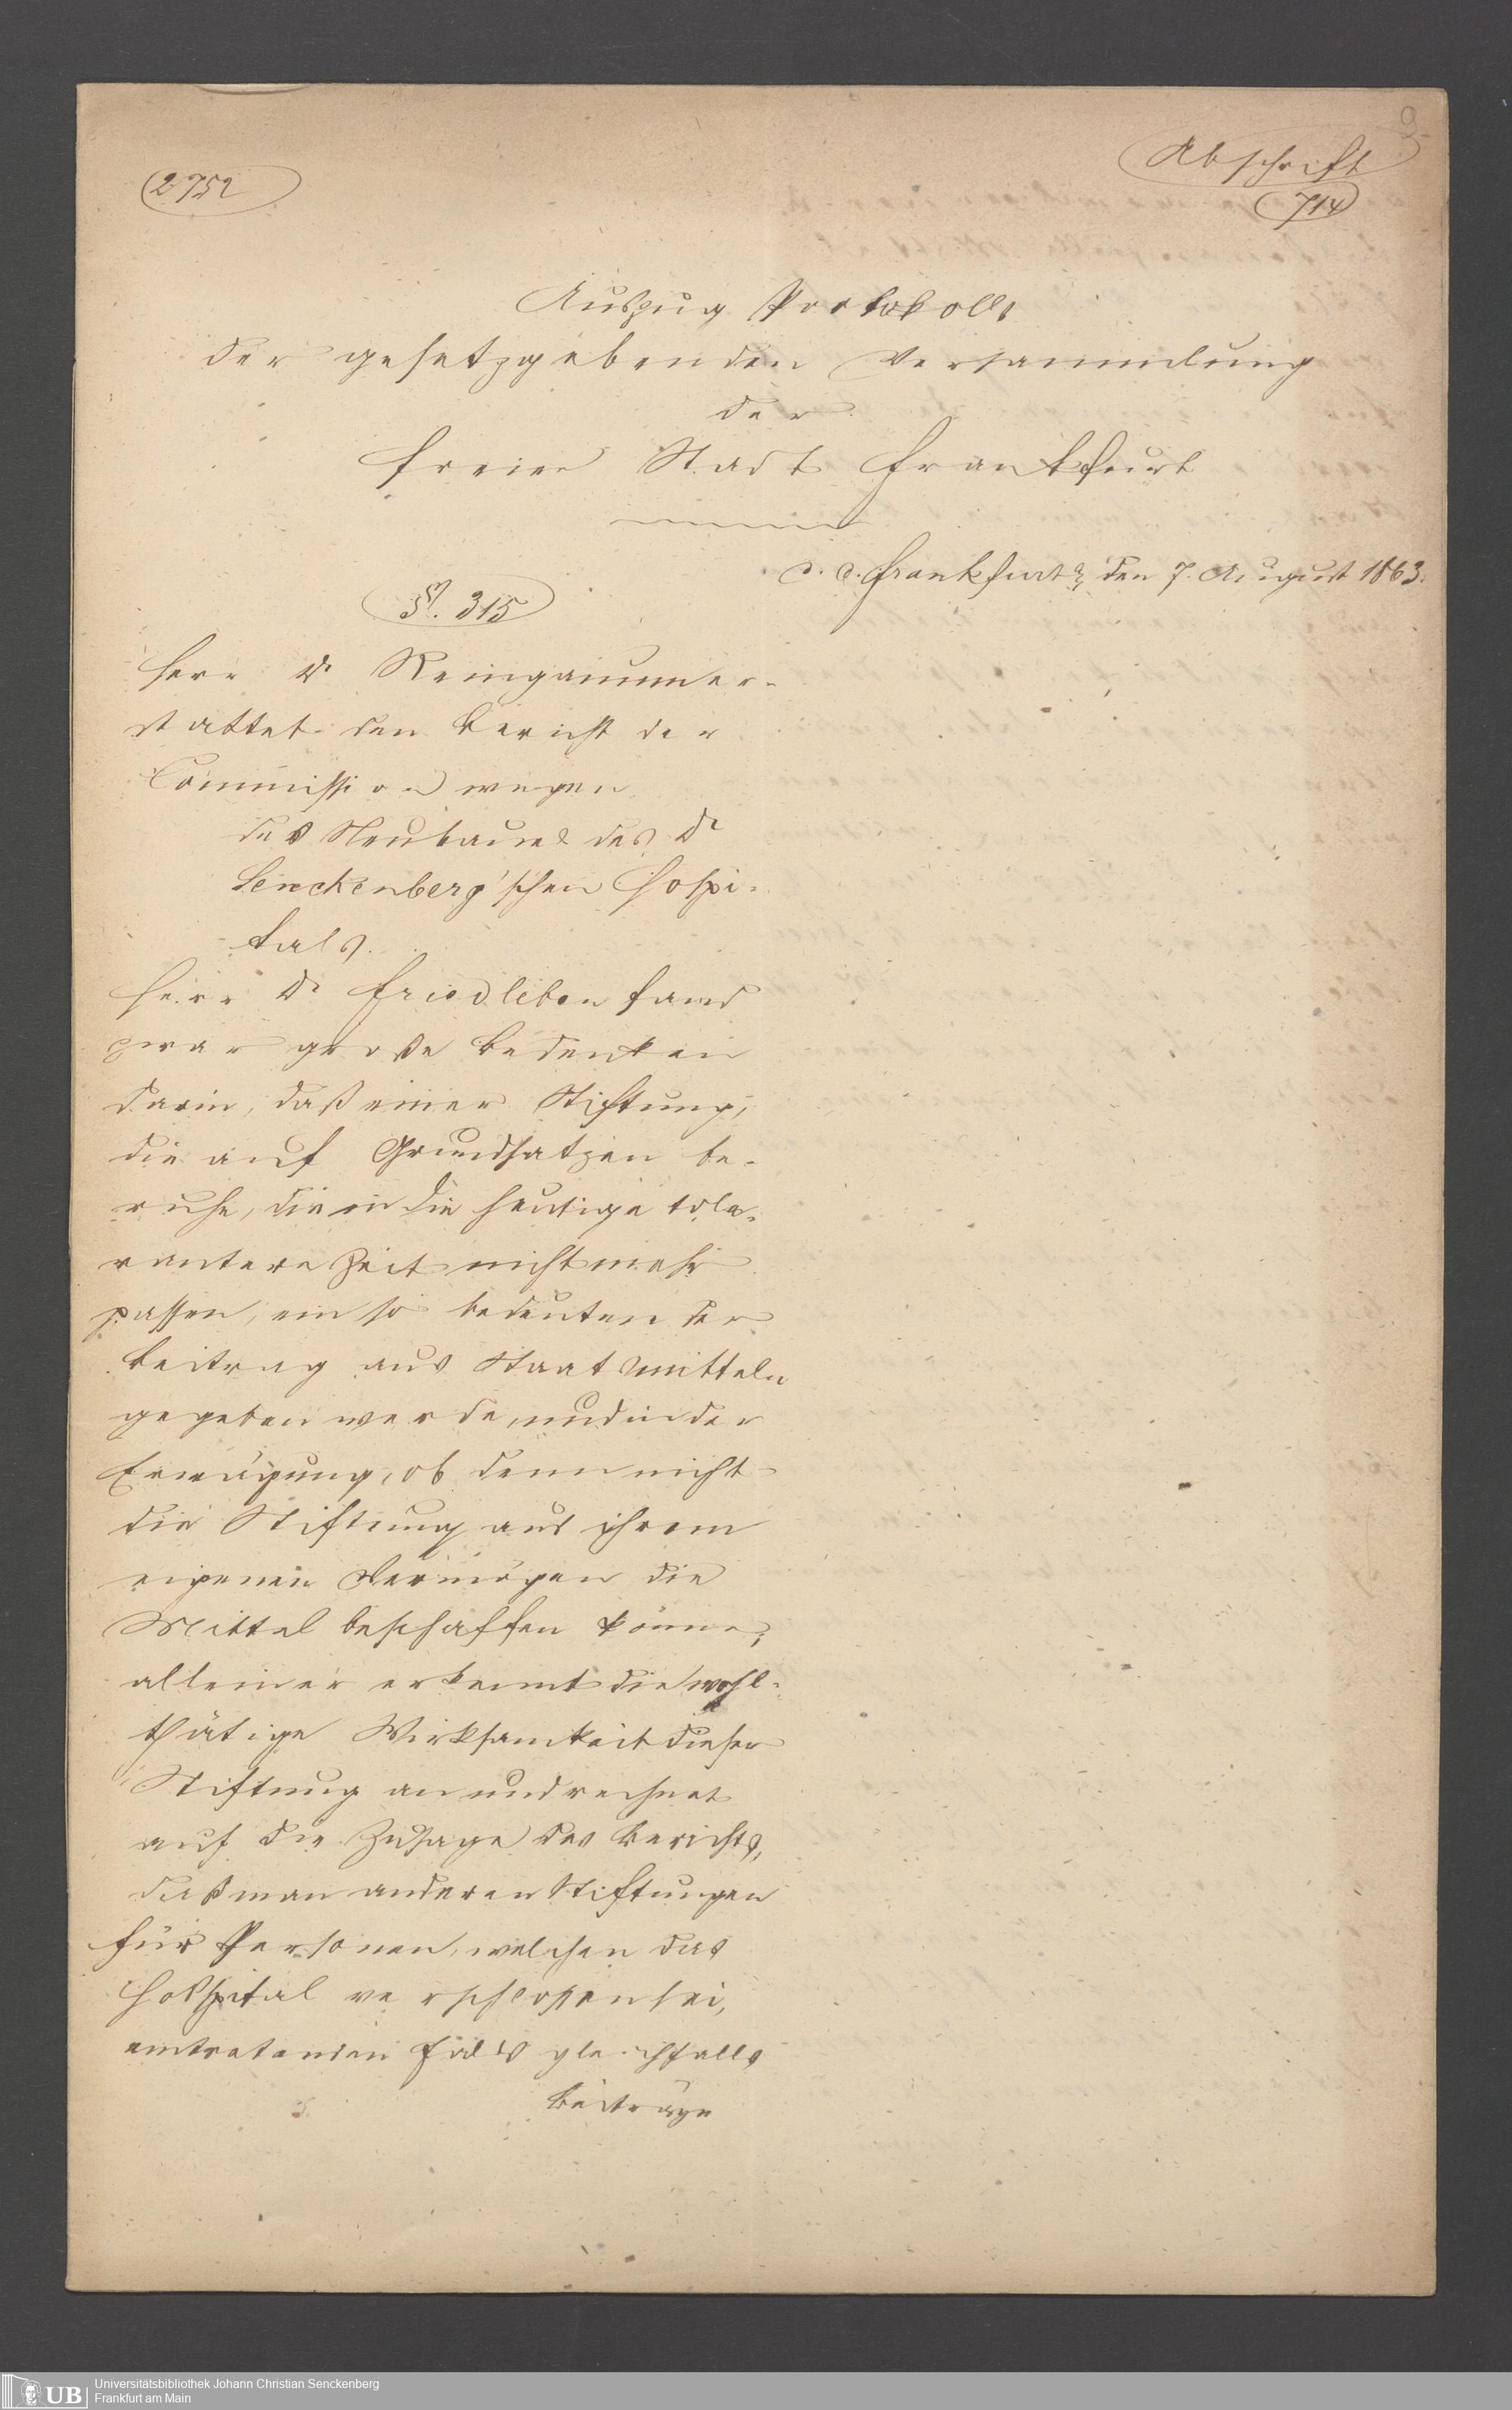 9
Abschrift
714
2752
Auszug Protokolls
der gesetzgebenden Versammlung
der
freien Stadt Frankfurt
d. d. Frankfurt den 7. August 1863.
§. 315
Herr Dr Reingaumer-
stattet den Bericht der
Commission wegen
des Neubaues des Dr
Senckenberg'schen Hospi-
tals.
Herr Dr Friedleben fand
zwar große Bedenken
darin, daß einer Stiftung,
die auf Grundsatzen be-
ruhe, die in die heutige tole-
rantere Zeit nicht mehr
passen, ein so bedeutender
Beitrag aus Staatsmitteln
gegeben werde, und in der
Erwägung, ob denn nicht
die Stiftung aus ihrem
eigenen Vermögen die
Mittel beschaffen könne;
allein er erkennt die wohl-
thätige Wirksamkeit dieser
Stiftung an und rechnet
auf die Zusage des Berichts,
daß man anderen Stiftungen
für Personen, welchen das
Hospital verschlossen sei,
eintretenden Falls gleichfalls
Beiträge
UB
Universitätsbibliothek Johann Christian Senckenberg
Frankfurt am Main